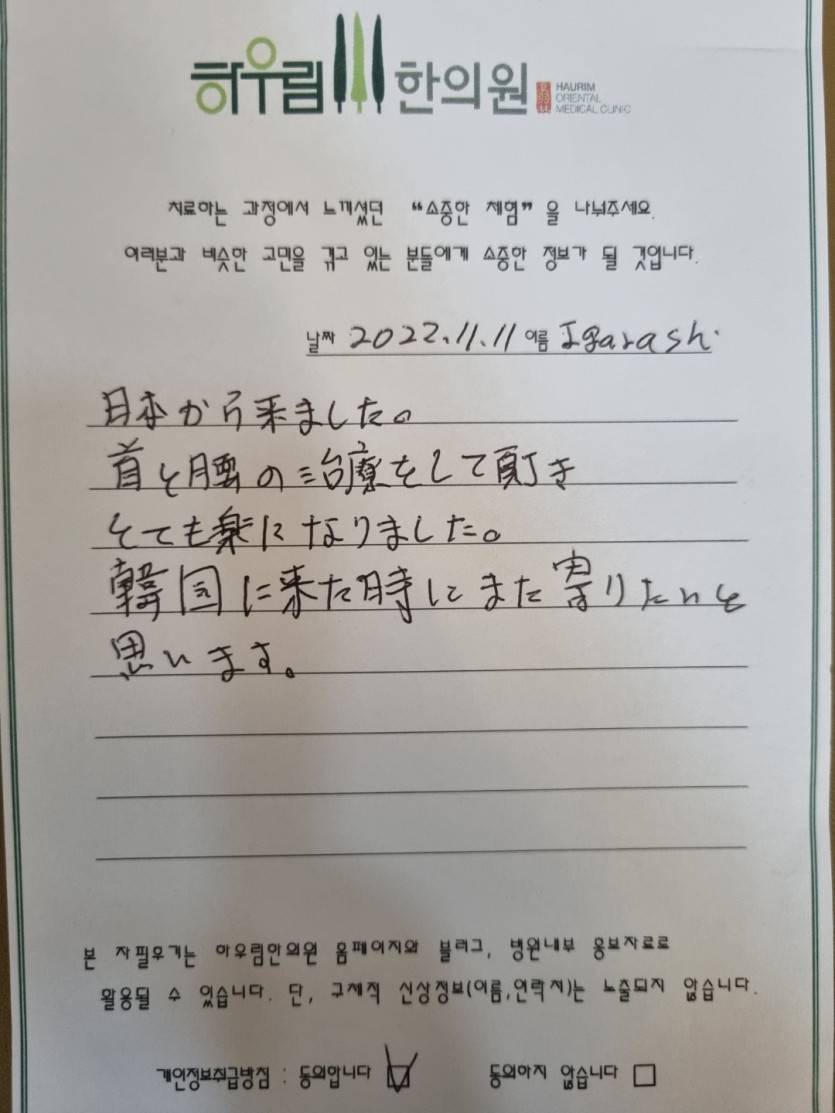 하우림 한의원 HAURIM ORIENTAL MEDICAL CLINIC
치료하는 과정에서 느끼셨던 “소중한 체험” 을 나눠주세요.
여러분과 비슷한 고민을 겪고 있는 분들에게 소중한 정보가 될 것입니다.
날짜 2022.11.11 이름 Igarashi
日本から来ました。
首と腰の治療をして頂き
とても楽になりました。
韓国に来た時にまた寄りたいと
思います。
본 자필후기는 하우림한의원 홈페이지와 블러그, 병원내부 홍보자료로
활용될 수 있습니다. 단, 구체적 신상정보(이름,연락처)는 노출되지 않습니다.
개인정보취급방침 : 동의합니다 동의하지 않습니다